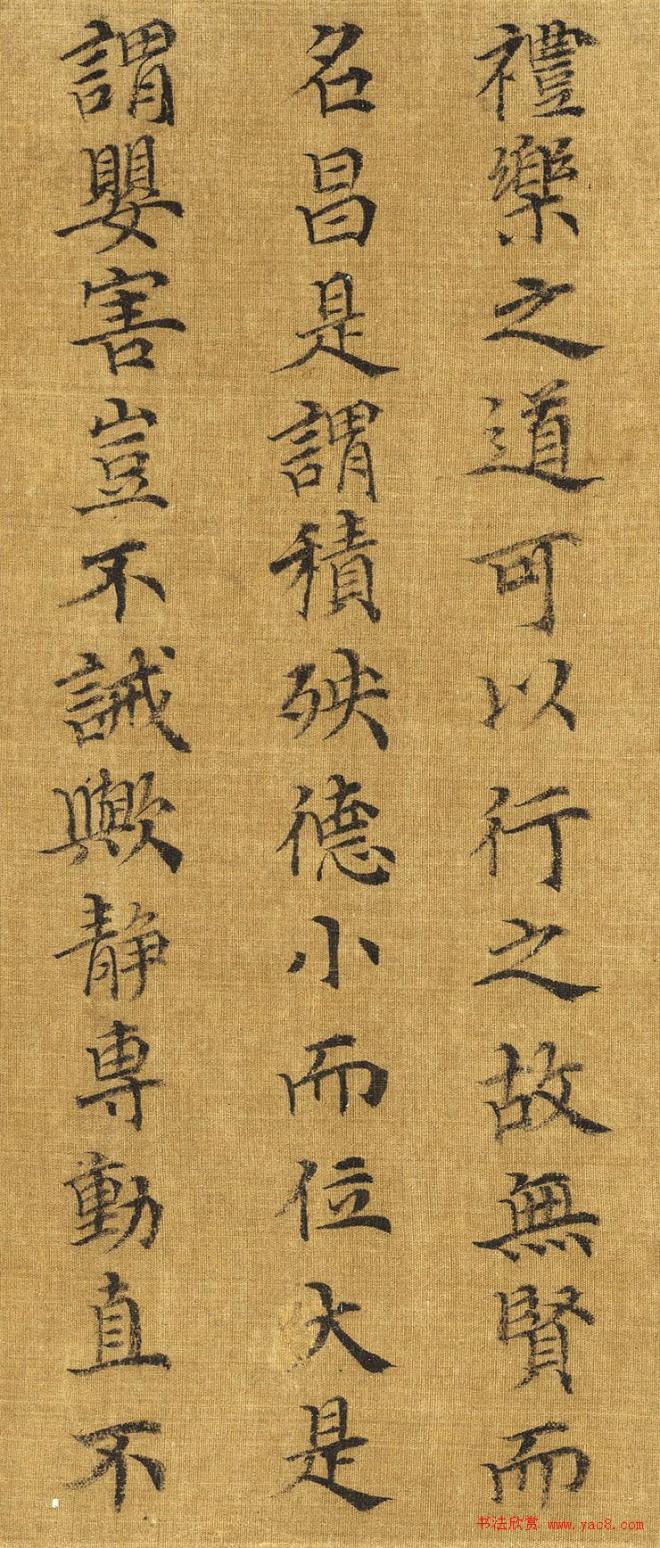 禮樂之道可以行之故無賢而
名昌是謂積殃德小而位大是
謂嬰害豈不誡歟静專動直不
书法欣赏 www.yac8.com